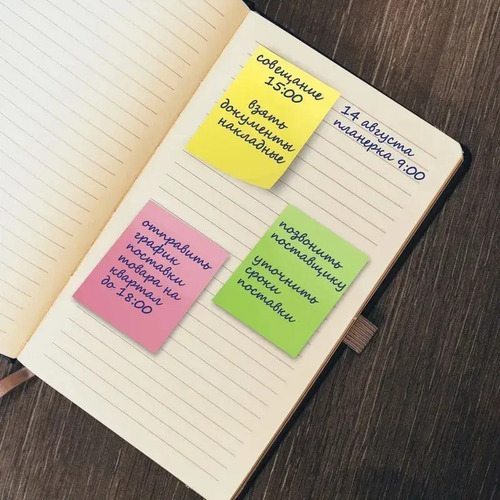 совещание
15:00
взять
документы
накладные
14 августа
планерка 9:00
отправить
график
поставки
товара на
квартал
до 18:00
позвонить
поставщику
уточнить
сроки
поставки